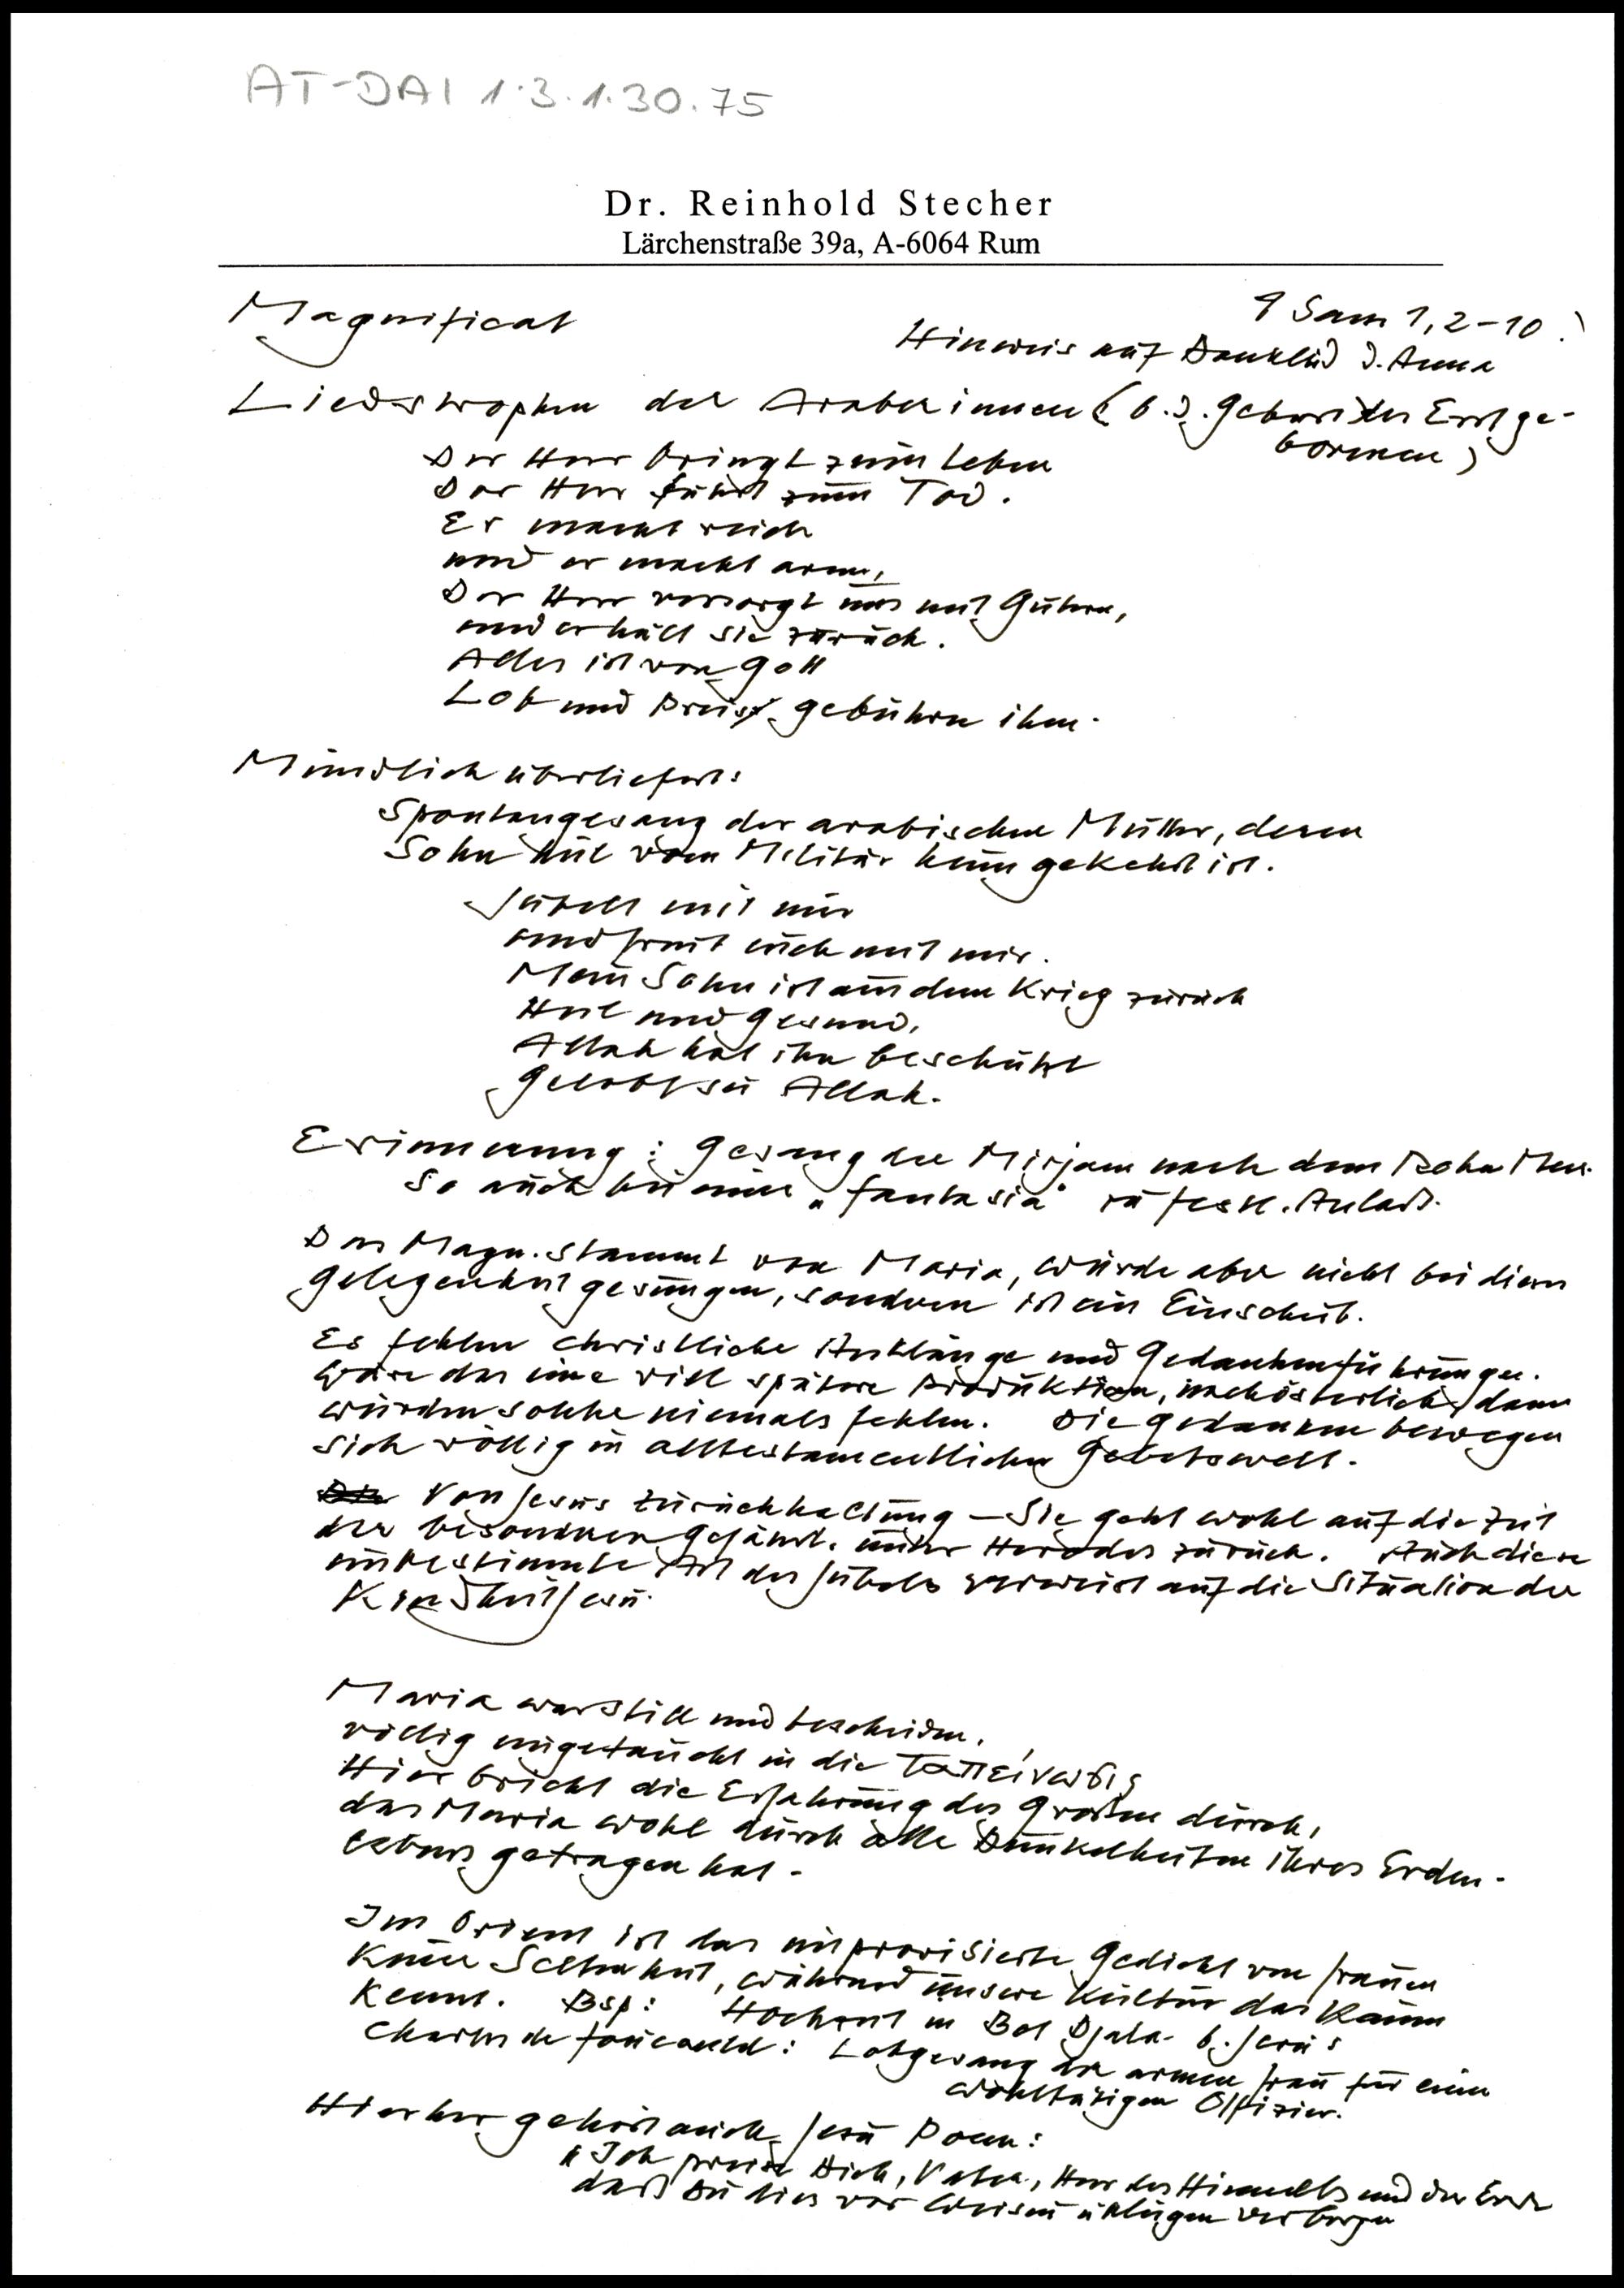 AT-DAI 1.3.1.30.75
Dr. Reinhold Stecher
Lärchenstraße 39a, A-6064 Rum
Magnificat
1 Sam 1,2-10!
Hinweis auf Danklied d. Anna
Liedstrophen der Araberinnen (b. d. Geburt des Erstge-
borenen)
Der Herr bringt zum Leben
Der Herr führt zum Tod.
Er macht reich
und er macht arm,
Der Herr versorgt uns mit Gütern,
und er hält sie zurück.
Alles ist von Gott
Lob und Preis gebühren ihm.
Mündlich überliefert:
Spontangesang der arabischen Mutter, deren
Sohn heil vom Militär heimgekehrt ist.
Jubelt mit mir
und freut euch mit mir.
Mein Sohn ist aus dem Krieg zurück
Heil und gesund,
Allah hat ihn beschützt
Gelobt sei Allah.
Erinnerung: Gesang der Mirjam nach dem Roten Meer.
So auch bei einer „Fantasia" zu festl. Anlaß.
Das Magn. stammt von Maria, wurde aber nicht bei dieser
Gelegenheit gesungen, sondern ist ein Einschub.
Es fehlen christliche Anklänge und Gedankenführungen.
Wäre das eine viel spätere Produktion, nachösterlich, dann
würden solche niemals fehlen. Die Gedanken bewegen
sich völlig in alttestamentlicher Gebetswelt.
Von Jesus Zurückhaltung – Sie geht wohl auf die Zeit
der besonderen Gefährd. unter Herodes zurück. Auch diese
unbestimmte Art des Jubels verweist auf die Situation der
Kindheit Jesu.
Maria war still und bescheiden,
völlig eingetaucht in die ταπείνωσις
Hier bricht die Erfahrung des Großen durch,
das Maria wohl durch alle Dunkelheiten ihres Erden-
lebens getragen hat.
Im Orient ist das improvisierte Gedicht von Frauen
keine Seltenheit, während unsere Kultur das kaum
kennt. Bsp: Hochzeit in Bet Djala b. Jerus
Charles de Foucauld: Lobgesang der armen Frau für einen
wohltätigen Offizier.
Hierher gehört auch Jesu Poem:
„Ich preise Dich, Vater, Herr des Himmels und der Erde
daß Du dies vor Weisen u klugen verborgen